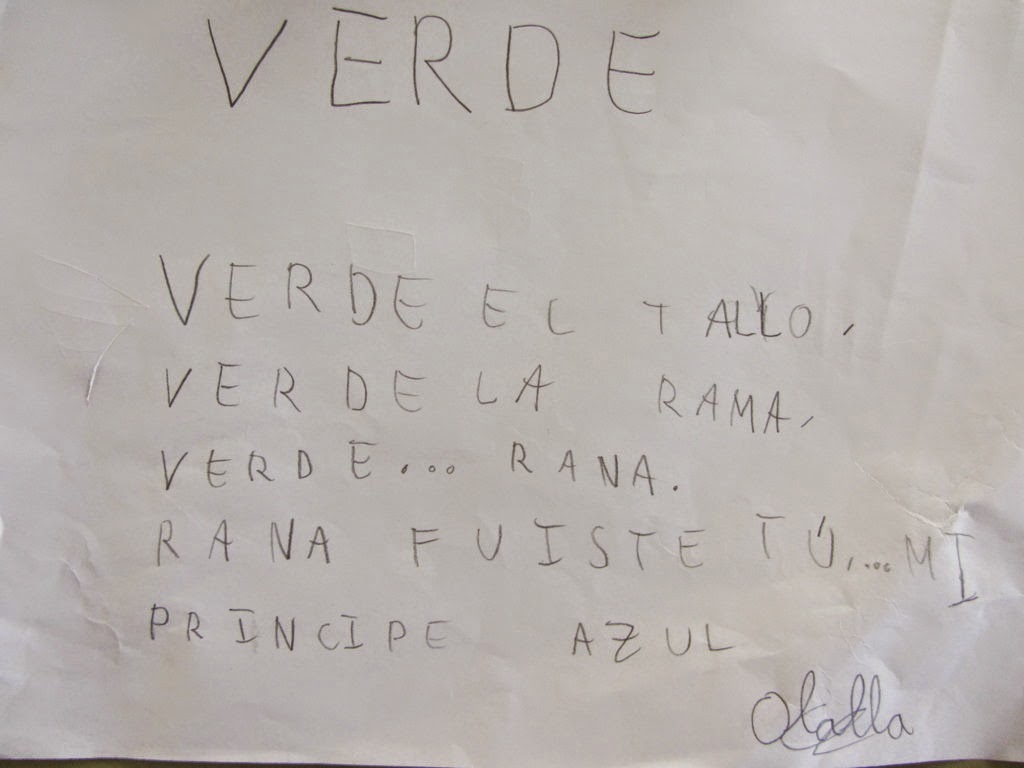 VERDE
VERDE EL TALLO,
VERDE LA RAMA,
VERDE... RANA.
RANA FUISTE TÚ,...MI
PRINCIPE AZUL